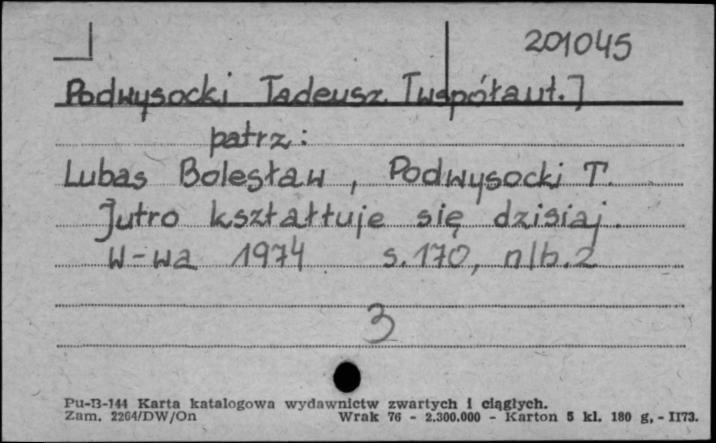 201045
Podwysocki Tadeusz [współaut.]
patrz:
Lubas Bolesław, Podwysocki T.
Jutro kształtuje się dzisiaj.
W-wa 1974 s. 170, nlb. 2
3
Pu-B-144 Karta katalogowa wydawnictw zwartych i ciągłych.
Zam. 2264/DW/On Wrak 76 - 2.300.000 - Karton 5 kl. 180 g, - II73.